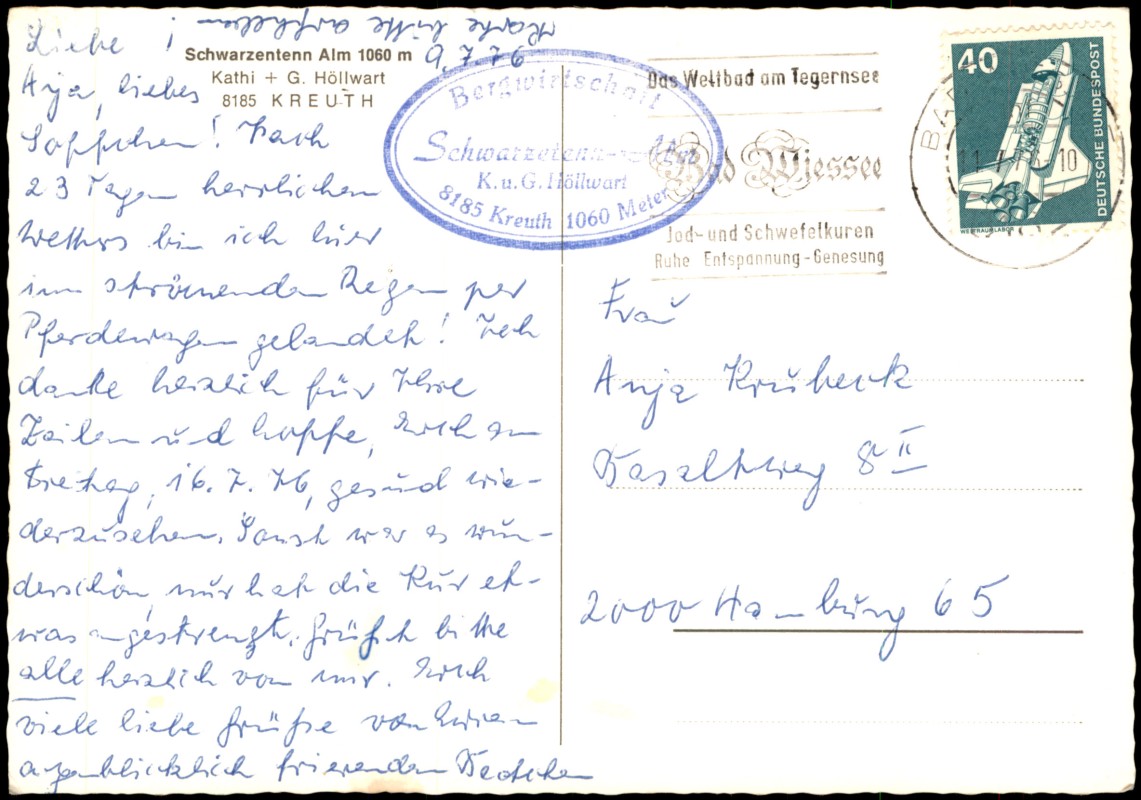 Karte bitte aufheben!
Schwarzentenn Alm 1060 m
Kathi + G. Höllwart
8185 KREUTH
9.7.76
Liebe
Anja, liebes
! Nach
23 Tagen herrlichen
Wetters bin ich hier
im strömenden Regen per
Pferdewagen gelandet! Ich
danke herzlich für Ihre
Zeilen und hoffe, Euch am
Freitag, 16.7.76, gesund wie-
derzusehen. Sonst war es wun-
derschön, nur hat die Kur et-
was angestrengt. Grüßt bitte
alle herzlich von mir. Euch
viele liebe Grüße von Eurem
augenblicklich frierenden
Bergwirtschaft
Schwarzetenn-Alm
K.u.G. Höllwart
8185 Kreuth 1060 Meter
Das Weltbad am Tegernsee
Bad Wiessee
Jod- und Schwefelkuren
Ruhe Entspannung - Genesung
BAD
11.7.76-10
40
DEUTSCHE BUNDESPOST
WELTRAUMLABOR
Frau
Anja Krubeck
Basaltweg 8 II
2000 Hamburg 65